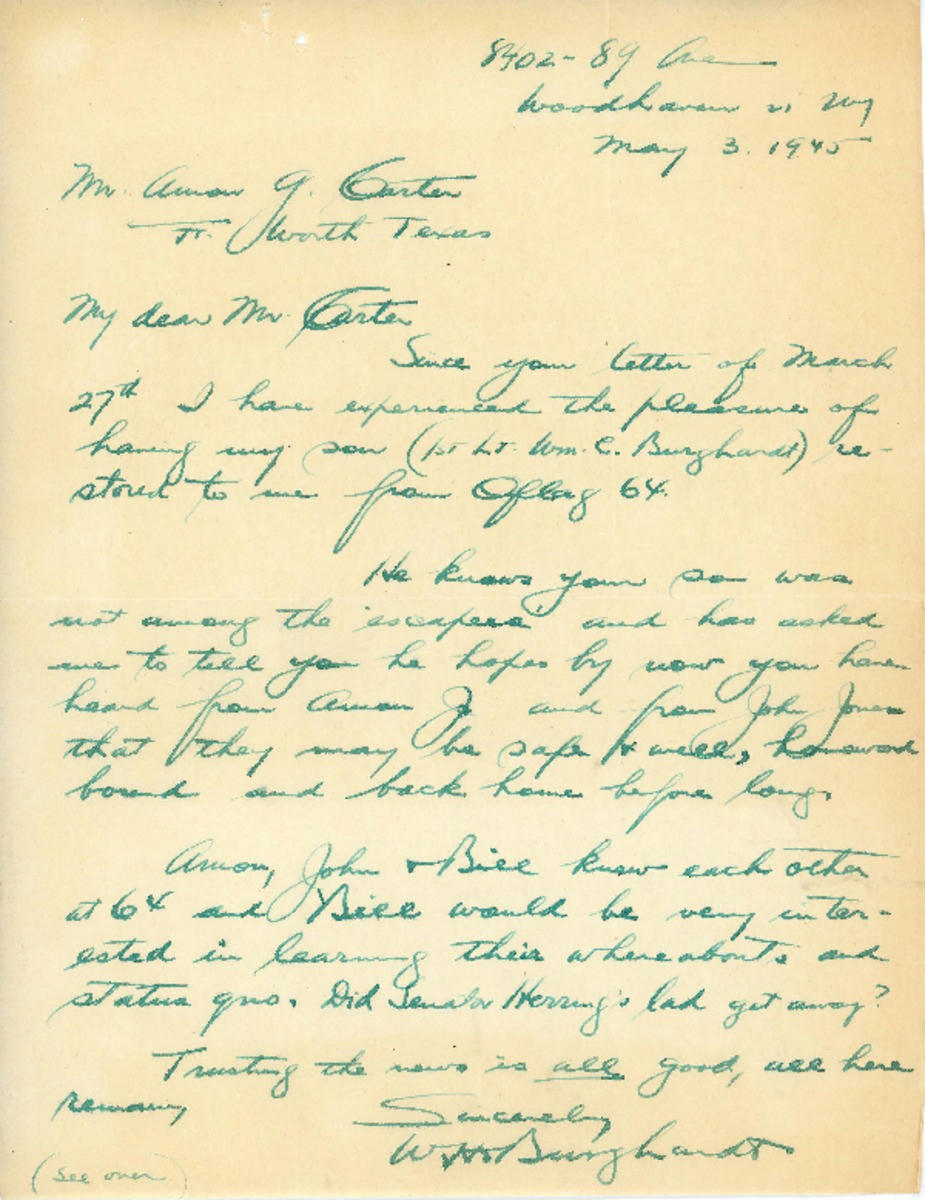 8402-89 Ave
Woodhaven 21 NY
May 3. 1945
Mr. Amon G. Carter
Ft. Worth Texas
My dear Mr. Carter
Since your letter of March
27th I have experienced the pleasure of
having my son (1st Lt. Wm. C. Burghardt) re-
stored to me from Oflag 64.
He knows your son was
not among the 'escapees' and has asked
me to tell you he hopes by now you have
heard from Amon Jr and from John Jones
that they may be safe & well, homeward
bound and back home before long.
Amon, John & Bill knew each other
at 64 and Bill would be very inter-
ested in learning their whereabouts and
status quo. Did Senator Herring's lad get away?
Trusting the news is all good, all here
remain,
Sincerely
W.H. Burghardt
(See over)